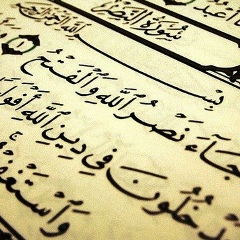 سُورَةُ النَّصْرِ
بِسْمِ ٱللَّهِ ٱلرَّحْمَٰنِ ٱلرَّحِيمِ
جَآءَ نَصْرُ ٱللَّهِ وَٱلْفَتْحُ ١
دْخُلُونَ فِى دِينِ ٱللَّهِ أَفْوَا
وَٱسْتَغْفِرْ